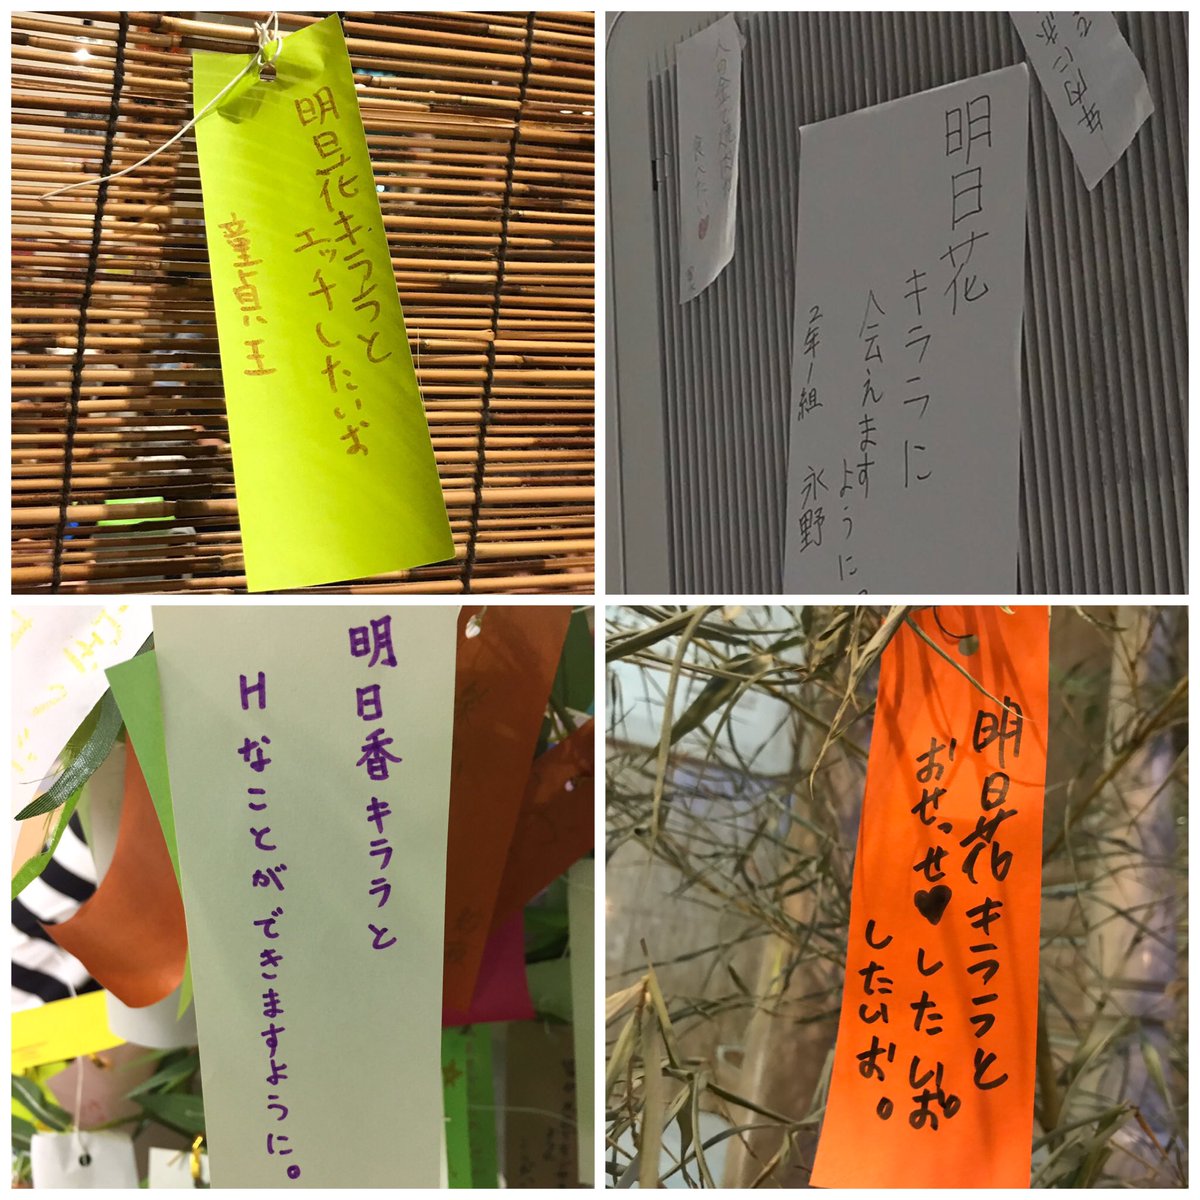 明日花キララと
エッチしたいお
童貞王
明日花
キララに
会えます
ように
2年1組 永野
明日香キララと
Hなことができますように。
明日花キララと
おせっせ♥したいお。
したいお。